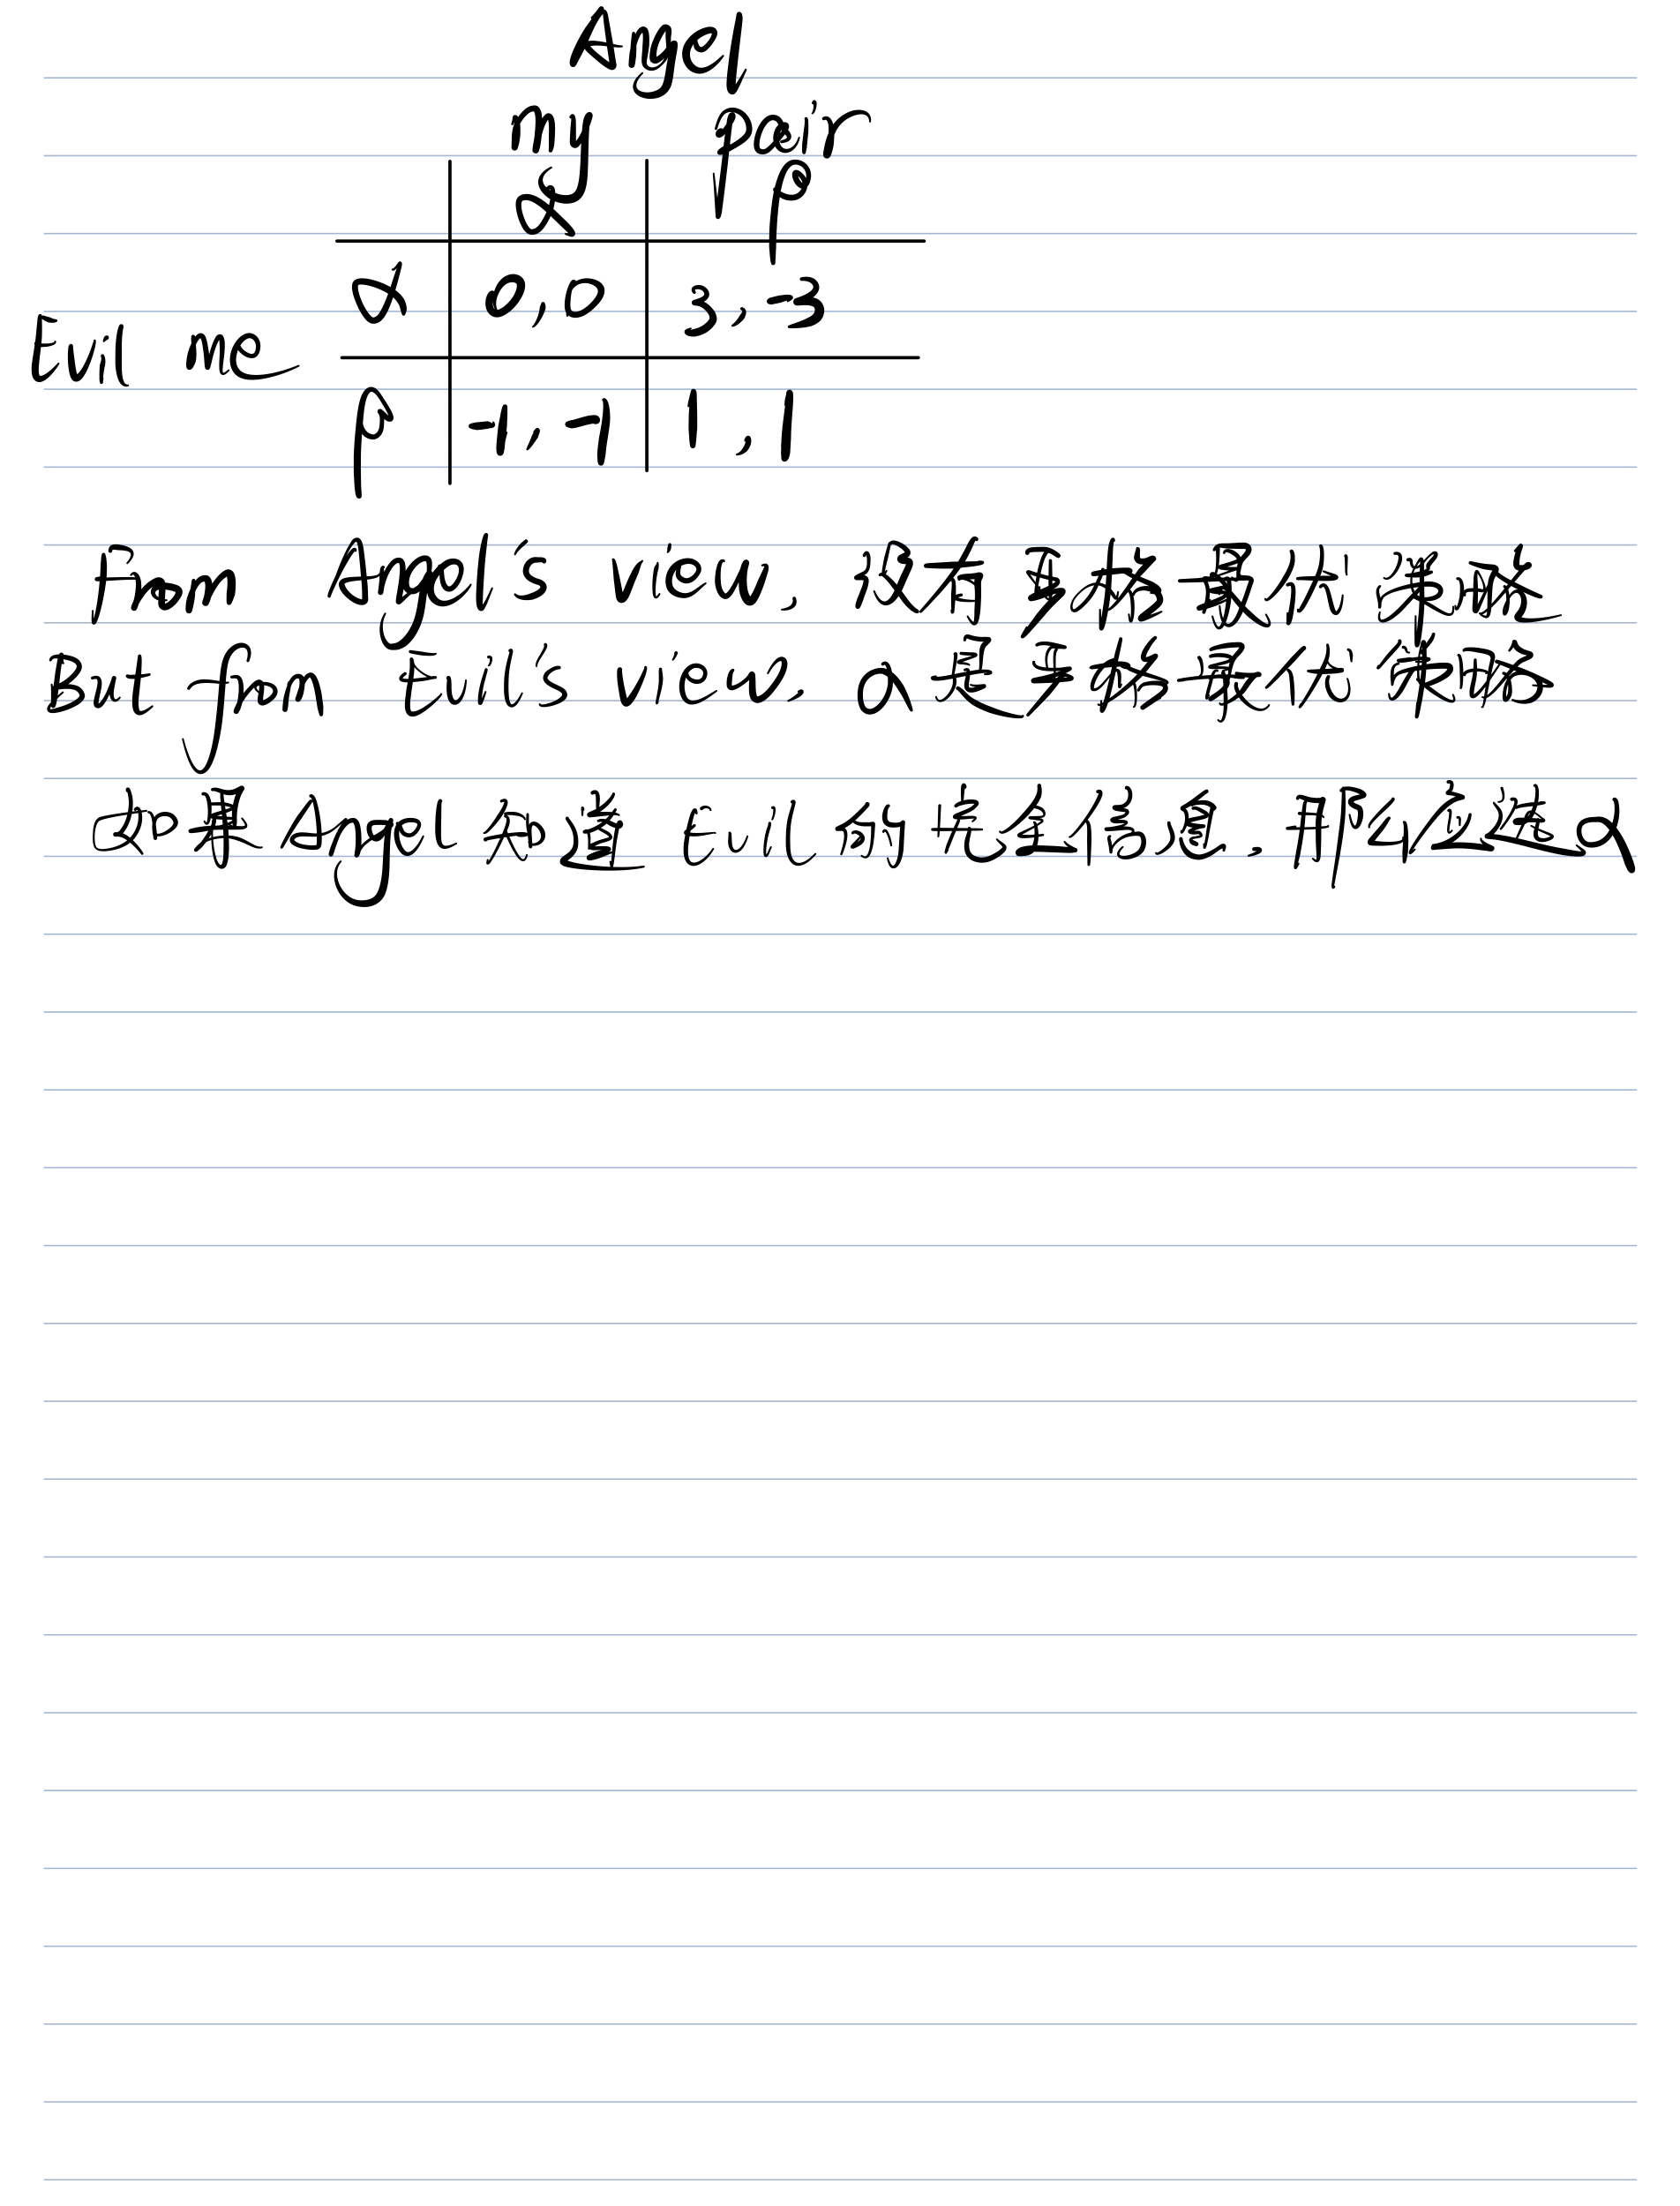 Angel
my pair
α β
α 0,0 3,-3
Evil me
β -1,-1 1,1
From Angel's view, 没有严格最优策略
But from Evil's view, α是严格最优策略
如果Angel知道Evil的完全信息.那么应选α